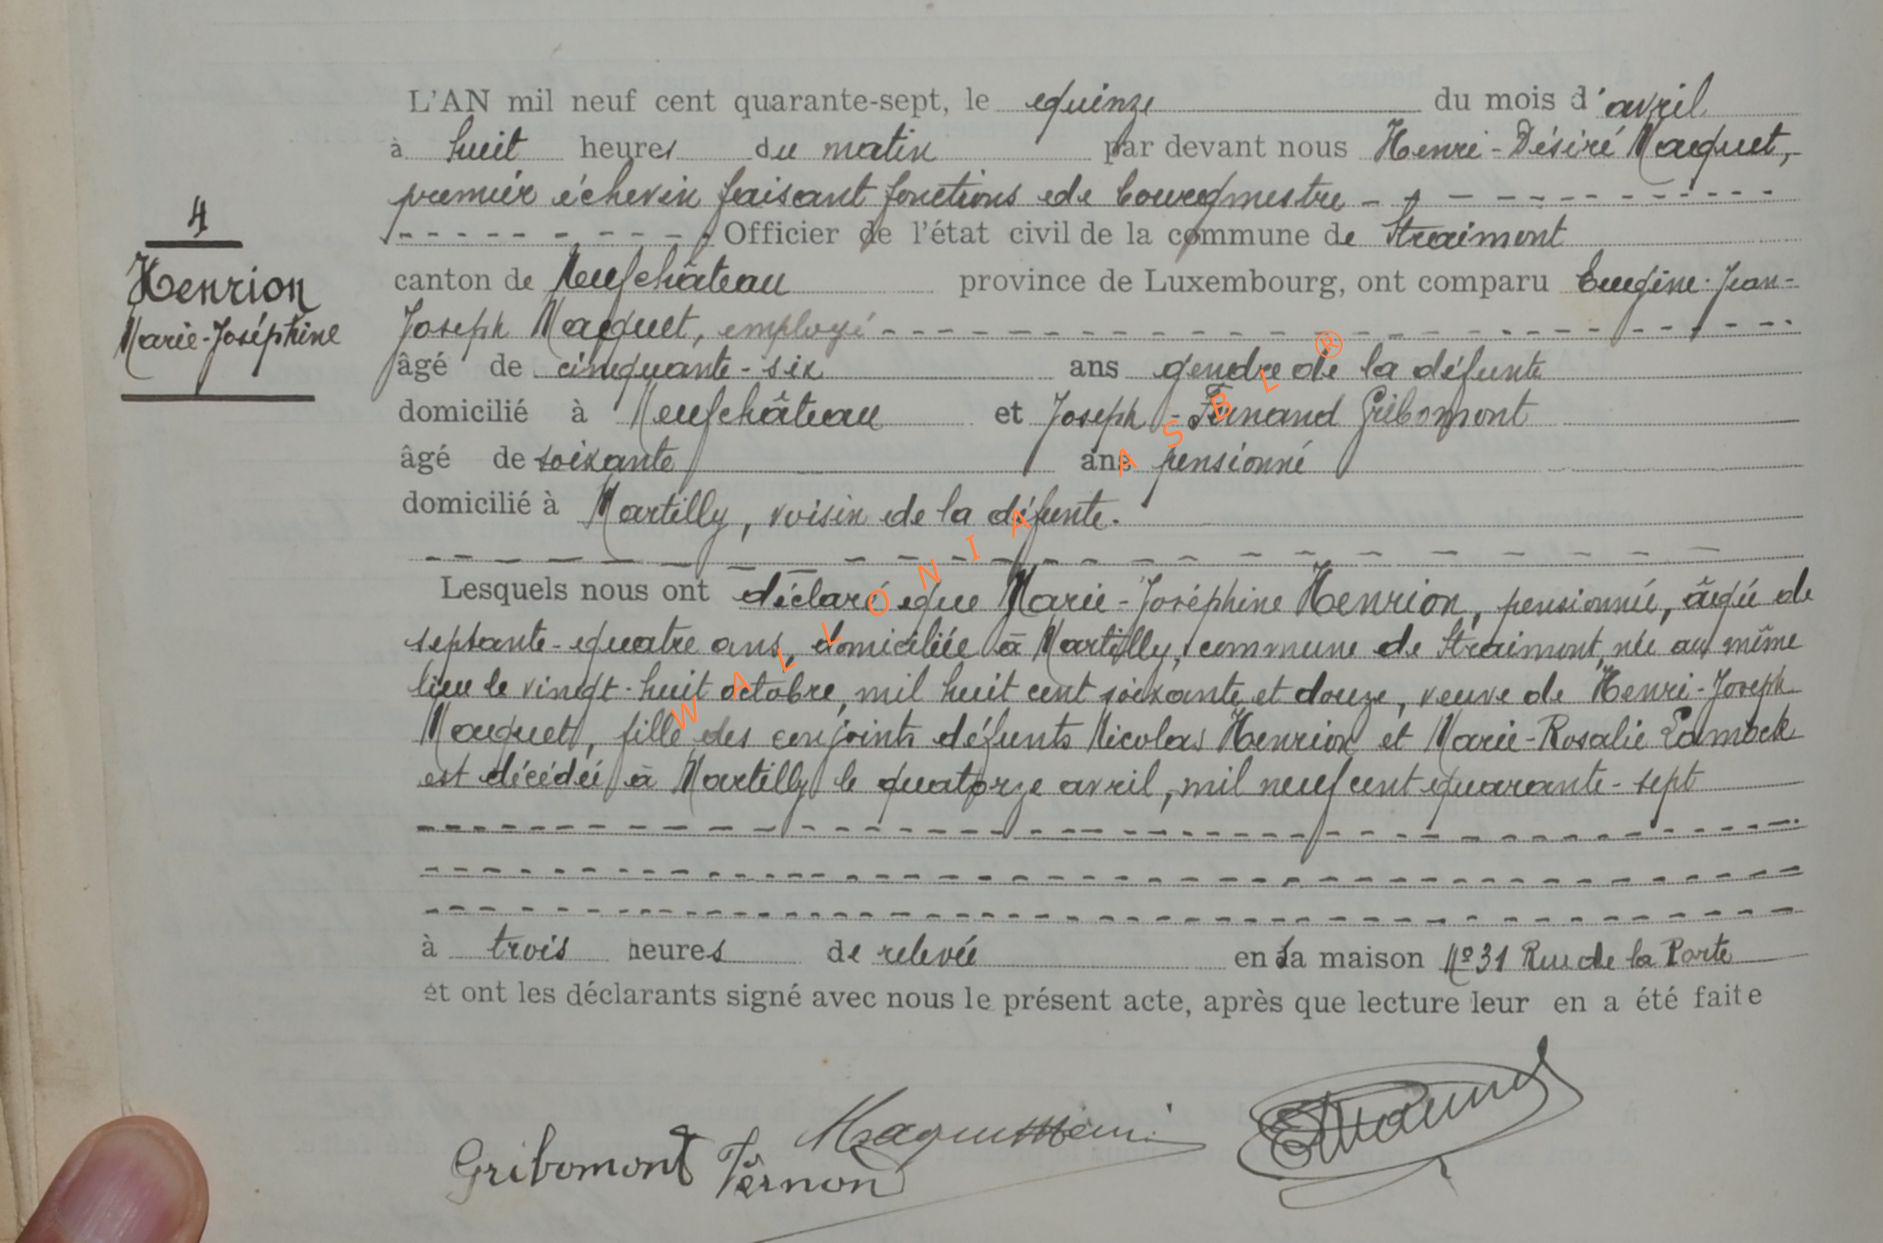 L'AN mil neuf cent quarante-sept, le quinze du mois d'avril
à huit heures du matin par devant nous Henri-Désiré Maquet,
premier échevin faisant fonctions de bourgmestre
Officier de l'état civil de la commune de Straimont
4
Henrion
Marie-Joséphine
canton de Neufchâteau province de Luxembourg, ont comparu Eugène-Jean-
Joseph Maquet, employé
âgé de cinquante-six ans gendre de la défunte
domicilié à Neufchâteau et Joseph-Fernand Gribomont
âgé de soixante ans pensionné
domicilié à Martilly, voisin de la défunte.
Lesquels nous ont déclaré que Marie-Joséphine Henrion, pensionnée, âgée de
septante-quatre ans, domiciliée à Martilly, commune de Straimont, née au même
lieu le vingt-huit octobre, mil huit cent soixante et douze, veuve de Henri-Joseph
Maquet, fille des conjoints défunts Nicolas Henrion et Marie-Rosalie Lamock
est décédée à Martilly le quatorze avril, mil neuf cent quarante-sept
à trois heures de relevée en sa maison N° 31 Rue de la Parte
et ont les déclarants signé avec nous le présent acte, après que lecture leur en a été faite
Gribomont Fernand
WALLONIA ASBL ®